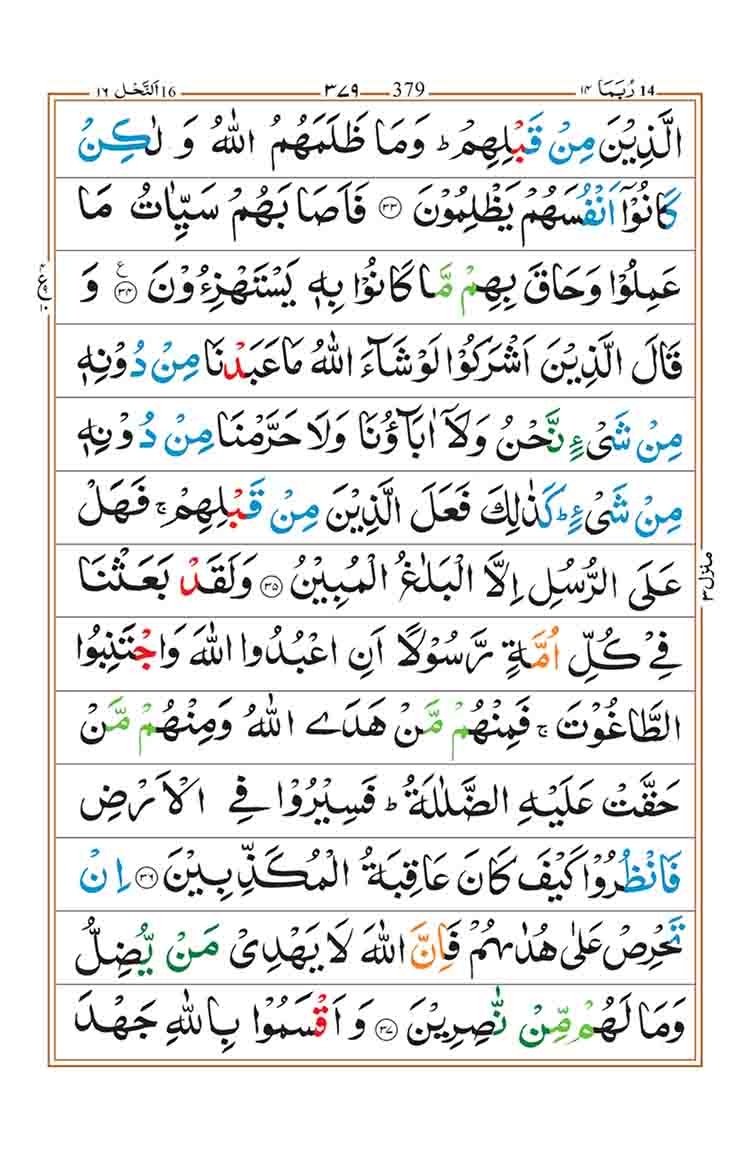 رُبَمَا ١٤ 14 379 ٣٧٩ اَلنَّحْل ١٦ 16
الَّذِيْنَ مِنْ قَبْلِهِمْ ؕ وَمَا ظَلَمَهُمُ اللّٰهُ وَ لٰكِنْ
كَانُوْۤا اَنْفُسَهُمْ يَظْلِمُوْنَ ۝٣٣ فَاَصَابَهُمْ سَيِّاٰتُ مَا
عَمِلُوْا وَحَاقَ بِهِمْ مَّا كَانُوْا بِهٖ يَسْتَهْزِءُوْنَ ۝٣٤ ع وَ
قَالَ الَّذِيْنَ اَشْرَكُوْا لَوْ شَآءَ اللّٰهُ مَا عَبَدْنَا مِنْ دُوْنِهٖ
مِنْ شَيْءٍ نَّحْنُ وَلَاۤ اٰبَآؤُنَا وَلَا حَرَّمْنَا مِنْ دُوْنِهٖ
مِنْ شَيْءٍ ؕ كَذٰلِكَ فَعَلَ الَّذِيْنَ مِنْ قَبْلِهِمْ ۚ فَهَلْ
عَلَى الرُّسُلِ اِلَّا الْبَلٰغُ الْمُبِيْنُ ۝٣٥ وَلَقَدْ بَعَثْنَا
فِيْ كُلِّ اُمَّةٍ رَّسُوْلًا اَنِ اعْبُدُوا اللّٰهَ وَاجْتَنِبُوا
الطَّاغُوْتَ ۚ فَمِنْهُمْ مَّنْ هَدَى اللّٰهُ وَمِنْهُمْ مَّنْ
حَقَّتْ عَلَيْهِ الضَّلٰلَةُ ؕ فَسِيْرُوْا فِي الْاَرْضِ
فَانْظُرُوْا كَيْفَ كَانَ عَاقِبَةُ الْمُكَذِّبِيْنَ ۝٣٦ اِنْ
تَحْرِصْ عَلٰى هُدٰىهُمْ فَاِنَّ اللّٰهَ لَا يَهْدِيْ مَنْ يُّضِلُّ
وَمَا لَهُمْ مِّنْ نّٰصِرِيْنَ ۝٣٧ وَ اَقْسَمُوْا بِاللّٰهِ جَهْدَ
منزل ٣